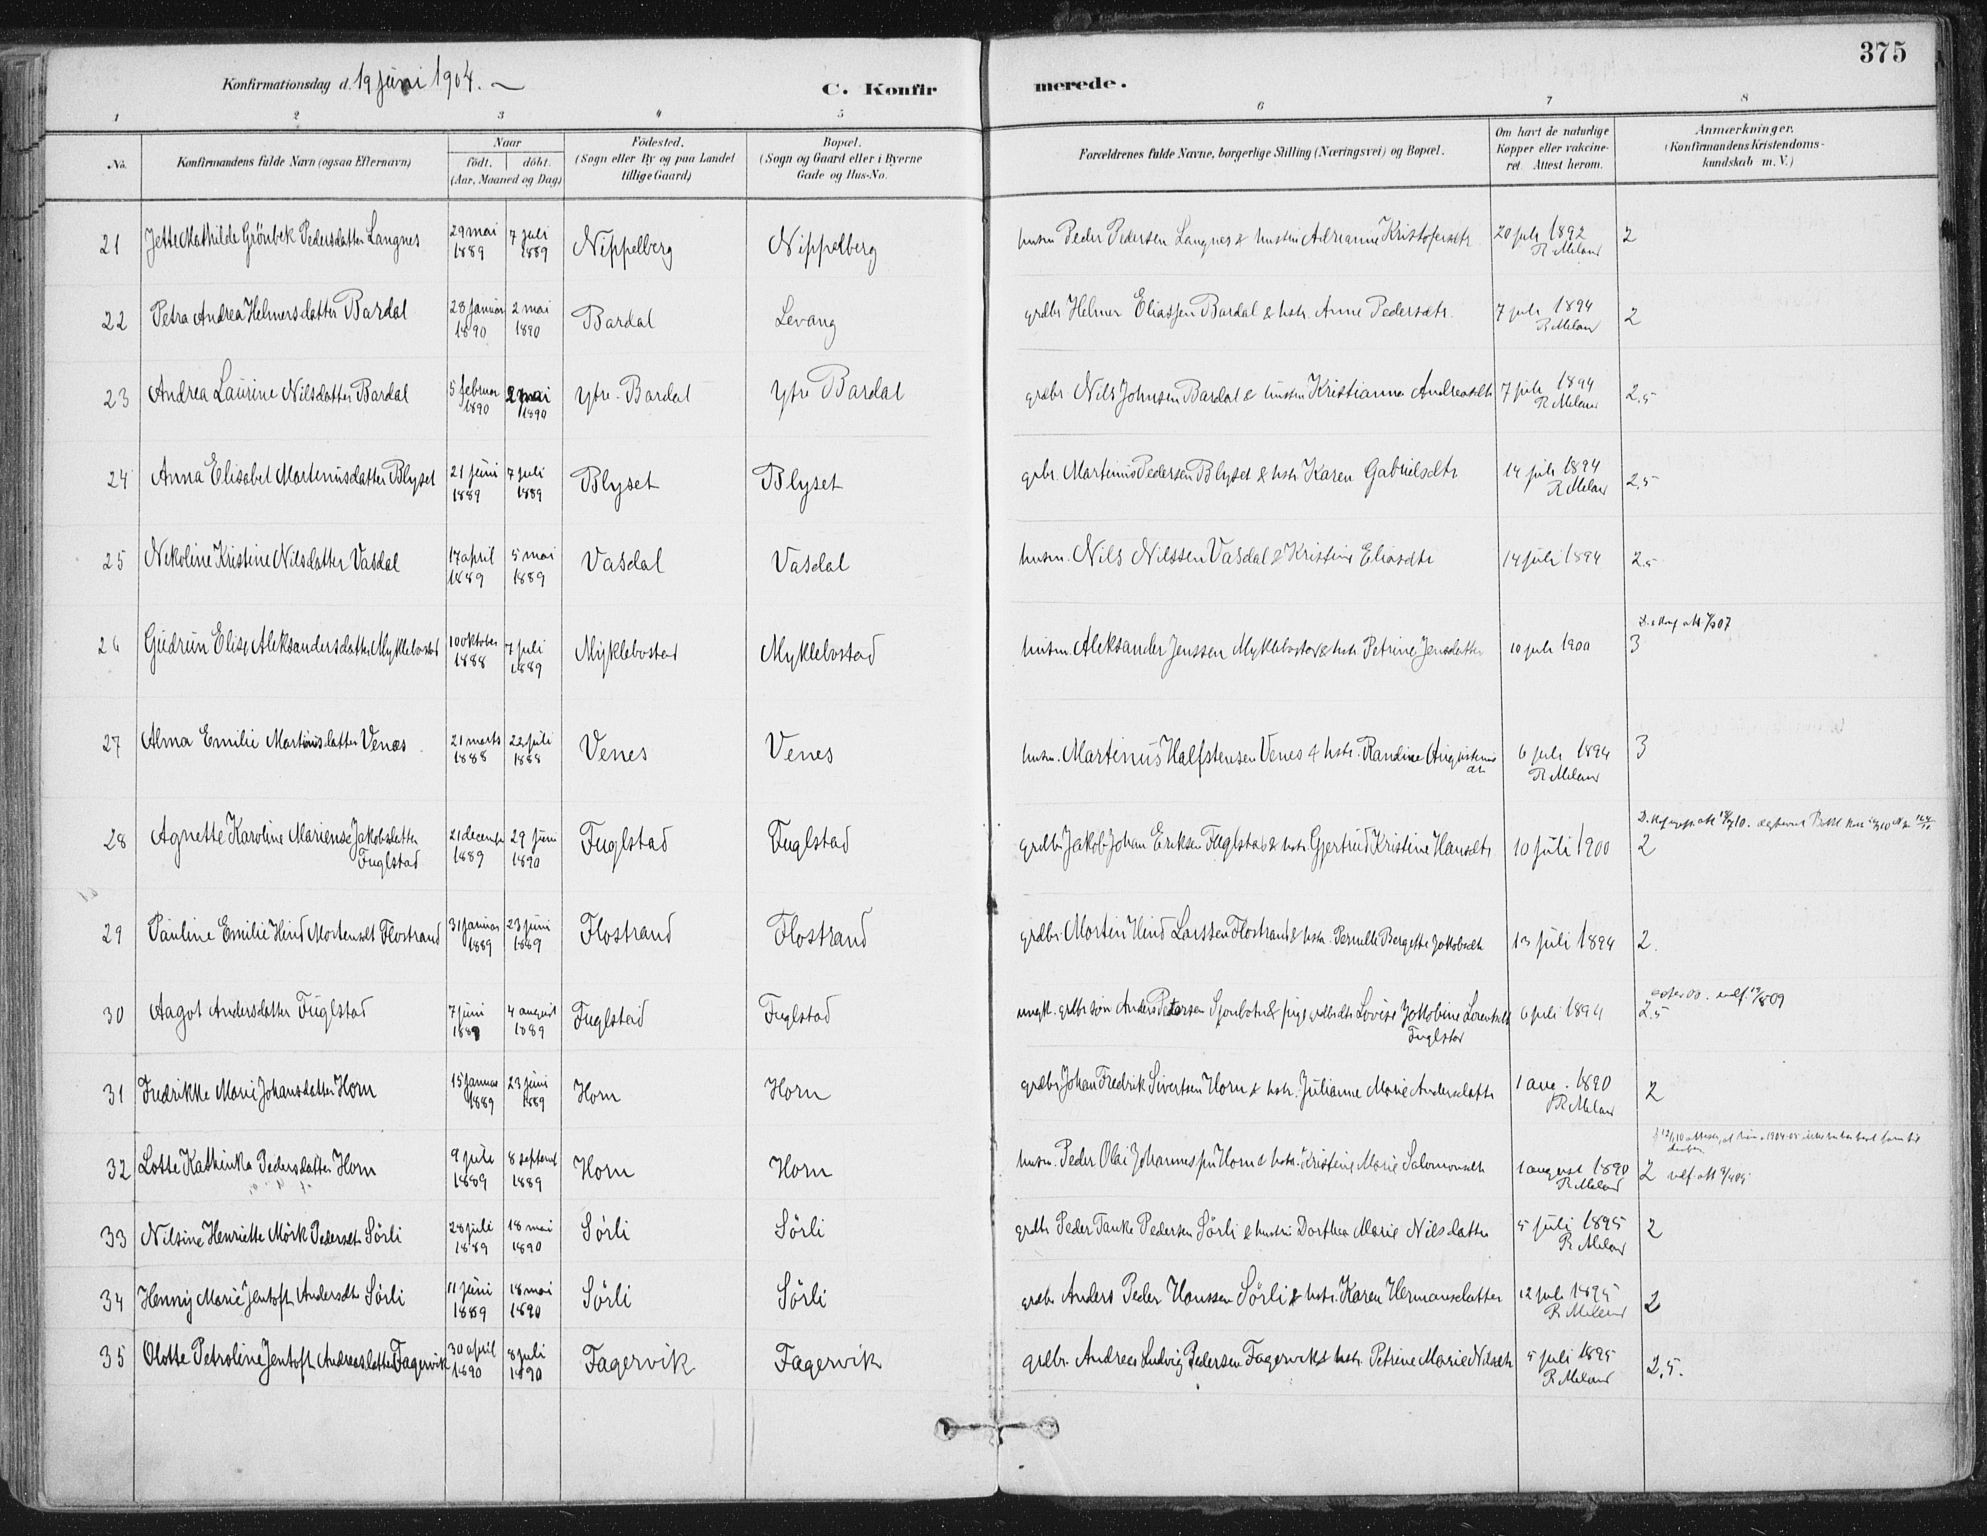 375
Konfirmationsdag d. 19 juni 1904.
C. Konfirmerede.
1 2 3 4 5 6 7 8
No. Konfirmandens fulde Navn (ogsaa Efternavn) Naar födt. döbt. (Aar, Maaned og Dag) Födested. (Sogn eller By og paa Landet tillige Gaard) Bopæl. (Sogn og Gaard eller i Byerne Gade og Hus-No. Forældrenes fulde Navne, borgerlige Stilling (Næringsvei) og Bopæl. Om havt de naturlige Kopper eller vakcineret. Attest herom. Anmærkninger. (Konfirmandens Kristendomskundskab m. V.)
21 Jette Mathilde Grönbek Pedersdatter Langnes 29 mai 1889 7 juli 1889 Nippelberg Nippelberg husm Peder Pedersen Langnes & hustru Adrianne Kristofersdtr 20 juli 1892 R Meland 2
22 Petra Andrea Helmersdatter Bardal 28 januar 1890 2 mai 1890 Bardal Levang grdbr Helmer Eliassen Bardal & hstr. Anne Pedersdtr. 7 juli 1894 R Meland 2
23 Andrea Laurine Nilsdatter Bardal 5 februar 1890 2 mai 1890 Ytre-Bardal Ytre Bardal grdbr. Nils Johnsen Bardal & hustru Kristianna Andreasdtr 7 juli 1894 R Meland 2,5
24 Anna Elisabet Martenusdatter Blyset 21 juni 1889 7 juli 1889 Blyset Blyset grbr. Martinus Pedersen Blyset & hstr Karen Gabrielsdtr 14 juli 1894 R Meland 2,5
25 Nekoline Kristine Nilsdatter Vasdal 17 april 1889 5 mai 1889 Vasdal Vasdal husm. Nils Nilssen Vasdal & Kristine Eliasdtr 14 juli 1894 2,5
26 Gudrun Elise Aleksandersdatter Myklebostad 10 oktober 1888 7 juli 1889 Myklebostad Myklebostad husm. Aleksander Jenssen Myklebostad & hstr Petrine Jensdatter 10 juli 1900 3
27 Alma Emilie Martinusdatter Venæs 21 marts 1888 22 juli 1888 Venes Venes husm. Martinus Halfstensen Venes & hstr. Randine Augustinusdtr 6 juli 1894 R Meland 3
28 Agnette Karoline Mariense Jakobsdatter Fuglstad 21 december 1889 29 juni 1890 Fuglstad Fuglstad grdbr Jakob Johan Eriksen Fuglstad & hstr. Gjertrud Kristine Hansdtr 10 juli 1900 2
29 Pauline Emilie Hind Mortensdt Flostrand 31 januar 1889 23 juni 1889 Flostrand Flostrand grdbr Morten Hind Larssen Flostrand & hstr. Pernille Bergette Jakobsdtr 13 juli 1894 2.
30 Aagot Andersdatter Fuglstad 7 juni 1889 4 august 1889 Fuglstad Fuglstad ungk. grdbr søn Anders Petersen Sjonbotn & pige grdbrdtr Lovise Jakobine Lorentsdtr Fuglstad 6 juli 1894 2,5
31 Fredrikke Marie Johansdatter Horn 15 januar 1889 23 juni 1889 Horn Horn grdbr Johan Fredrik Sivertsen Horn & hstr. Julianne Marie Andersdatter 1 aug. 1890 R Meland 2
32 Lotte Kathinka Pedersdatter Horn 9 juli 1889 8 septemb 1889 Horn Horn husm. Peder Olai Johannessen Horn & hstr. Kristine Marie Salomonsdtr 1 august 1890 R Meland 2
33 Nilsine Henriette Mörk Pedersdt Sörli 28 juli 1889 18 mai 1890 Sörli Sörli grdbr Peder Tanke Pedersen Sörli & hustru Dorthea Marie Nilsdatter 5 juli 1895 R Meland 2
34 Henny Marie Jentoft Andersdtr Sörli 11 juni 1889 18 mai 1890 Sörli Sörli grdbr Anders Peder Hanssen Sörli & hstr. Karen Hermansdatter 12 juli 1895 R Meland 2
35 Olotte Petroline Jentoft Andreasdatter Fagervik 30 april 1890 8 juli 1890 Fagervik Fagervik grdbr. Andreas Ludvig Pedersen Fagervik & hstr. Petrine Marie Nilsdtr 5 juli 1895 R Meland 2,5.